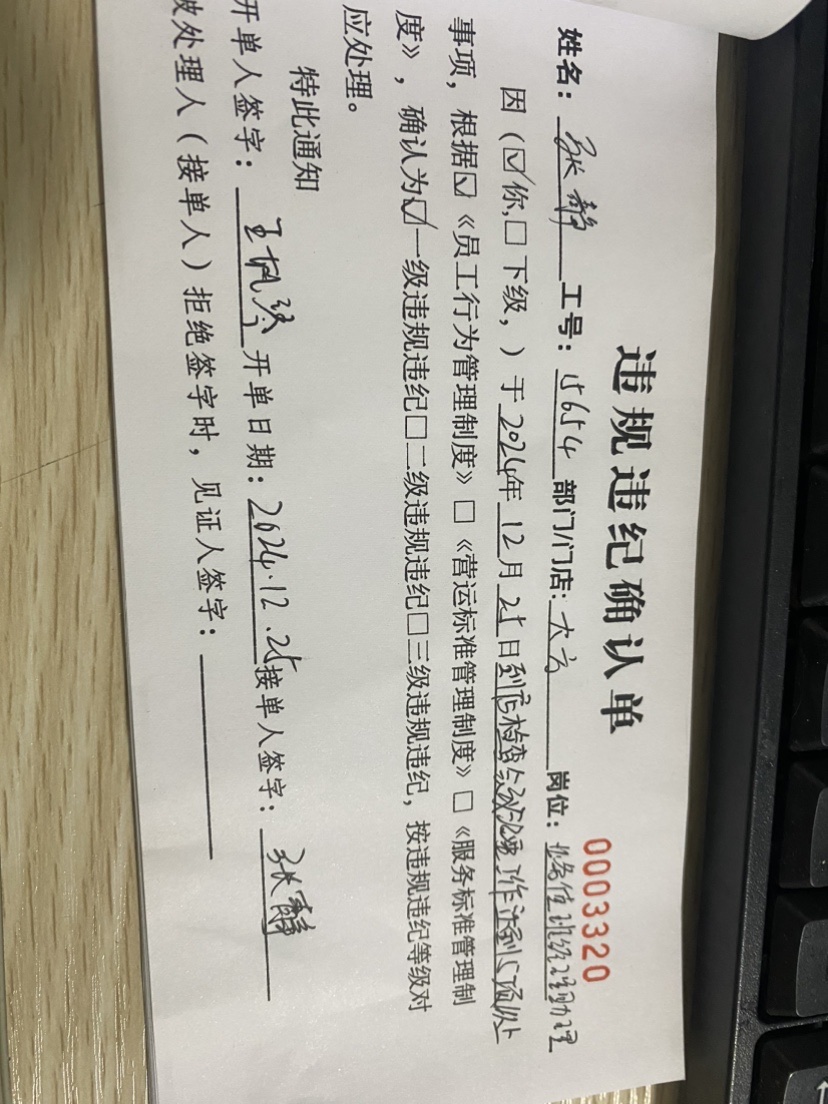 违规违纪确认单
0003320
姓名：张静 工号：15654 部门/门店：大方 岗位：值班经理助理
因（☑你,□下级，）于2024年12月25日到店检查 工作 处
事项，根据☑《员工行为管理制度》□《营运标准管理制度》□《服务标准管理制
度》，确认为☑一级违规违纪□二级违规违纪□三级违规违纪，按违规违纪等级对
应处理。
特此通知
开单人签字：王 开单日期：2024.12.25接单人签字：张静
被处理人（接单人）拒绝签字时，见证人签字：